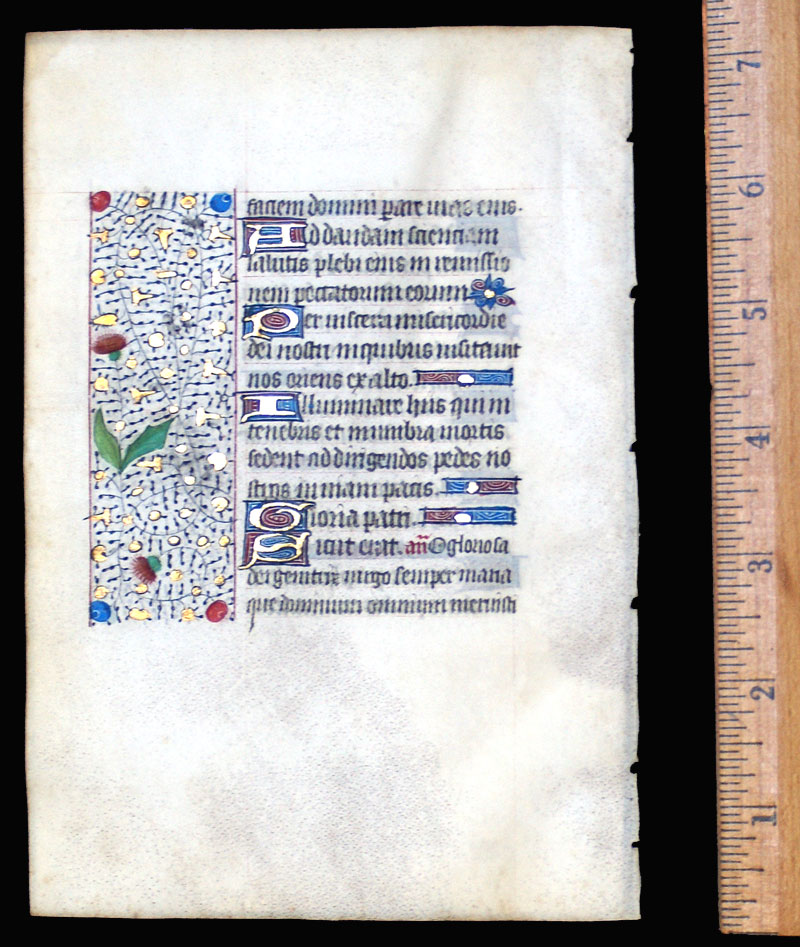 faciem domini parare vias eius.
Ad dandam scienciam
salutis plebi eius in remissio
nem peccatorum eorum
Per viscera misericordie
dei nostri in quibus visitavit
nos oriens ex alto.
Illuminare hiis qui in
tenebris et in umbra mortis
sedent ad dirigendos pedes no
stros in viam pacis.
Gloria patri.
Sicut erat. añ O gloriosa
dei genitrix virgo semper maria
que dominum omnium meruisti
7
6
5
4
3
2
1